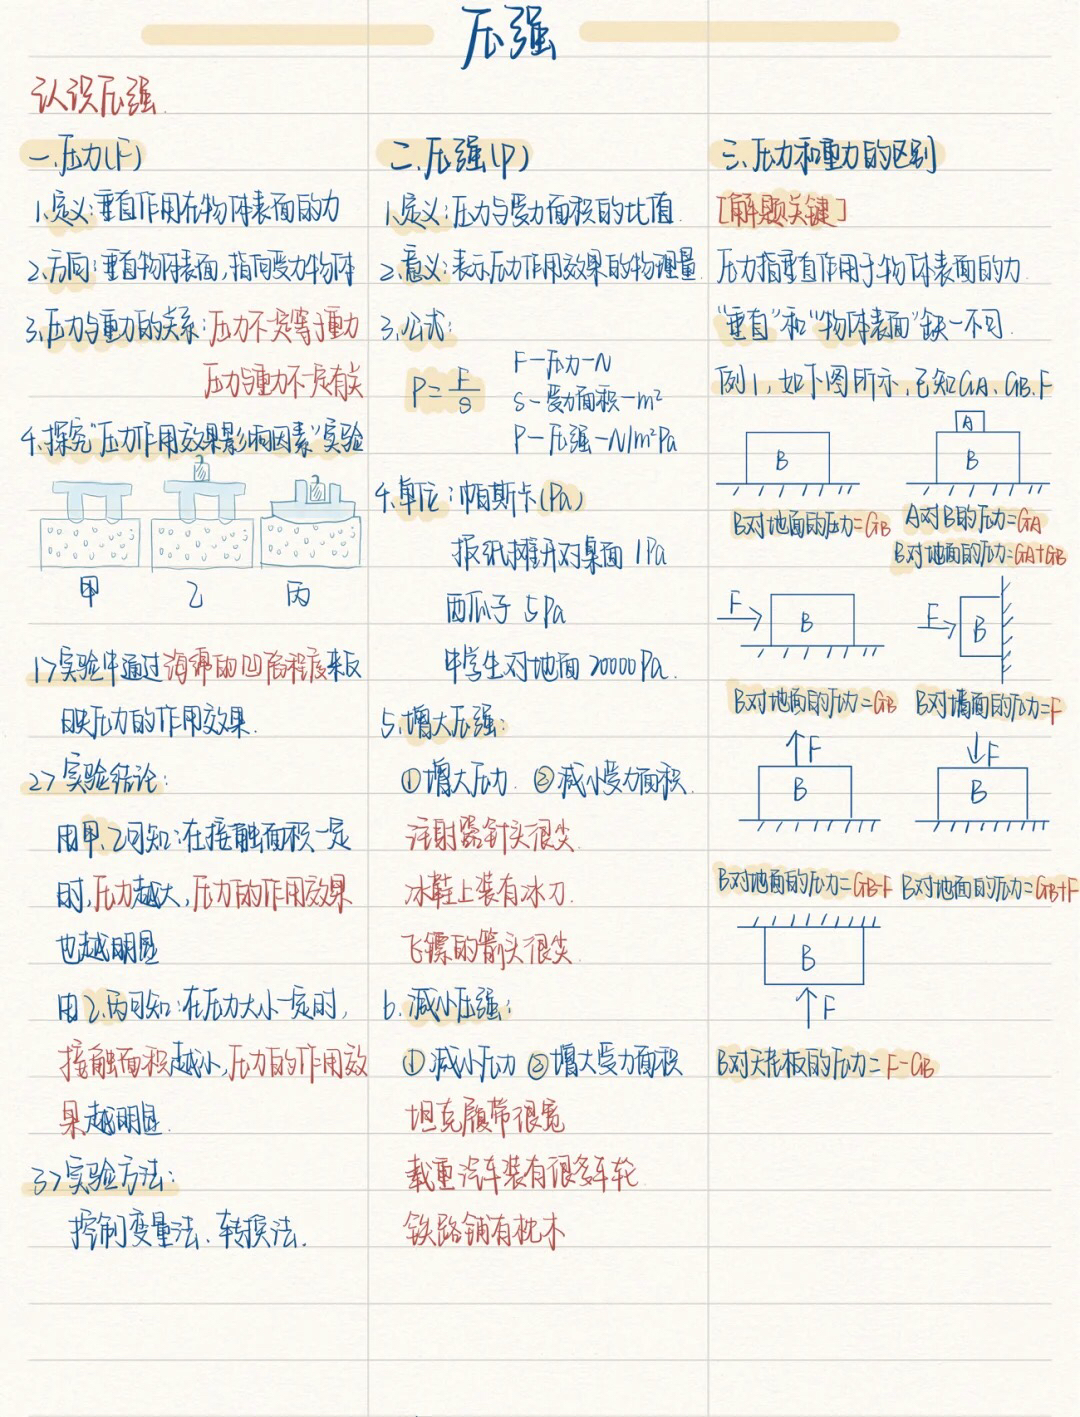 压强
认识压强.
一.压力(F)
1.定义:垂直作用在物体表面的力
2.方向:垂直物体表面,指向受力物体
3.压力与重力的关系:压力不一定等于重力
压力与重力不一定有关
4.探究"压力作用效果影响因素"实验
甲 乙 丙
1>实验中通过海绵的凹陷程度来反
映压力的作用效果.
2>实验结论:
由甲.乙可知:在接触面积一定
时,压力越大,压力的作用效果
也越明显
由乙.丙可知:在压力大小一定时,
接触面积越小,压力的作用效
果越明显.
3>实验方法:
控制变量法、转换法.
二.压强(P)
1.定义:压力与受力面积的比值.
2.意义:表示压力作用效果的物理量
3.公式:
P=F/S
F—压力—N
S—受力面积—m²
P—压强—N/m²Pa
4.单位:帕斯卡(Pa)
报纸摊开对桌面 1Pa
西瓜子 5Pa
中学生对地面 20000Pa.
5.增大压强:
①增大压力. ②减小受力面积.
注射器针头很尖.
冰鞋上装有冰刀.
飞镖的箭头很尖.
6.减小压强:
①减小压力 ②增大受力面积
坦克履带很宽
载重汽车装有很多车轮.
铁路铺有枕木
三.压力和重力的区别
[解题关键]
压力指垂直作用于物体表面的力.
"垂直"和"物体表面"缺一不可.
例1,如下图所示,已知GA、GB、F
B
A
B
B对地面的压力=GB
A对B的压力=GA
B对地面的压力=GA+GB
F B
F B
B对地面的压力=GB
B对墙面的压力=F
F
B
F
B
B对地面的压力=GB-F
B对地面的压力=GB+F
B
F
B对天花板的压力=F-GB